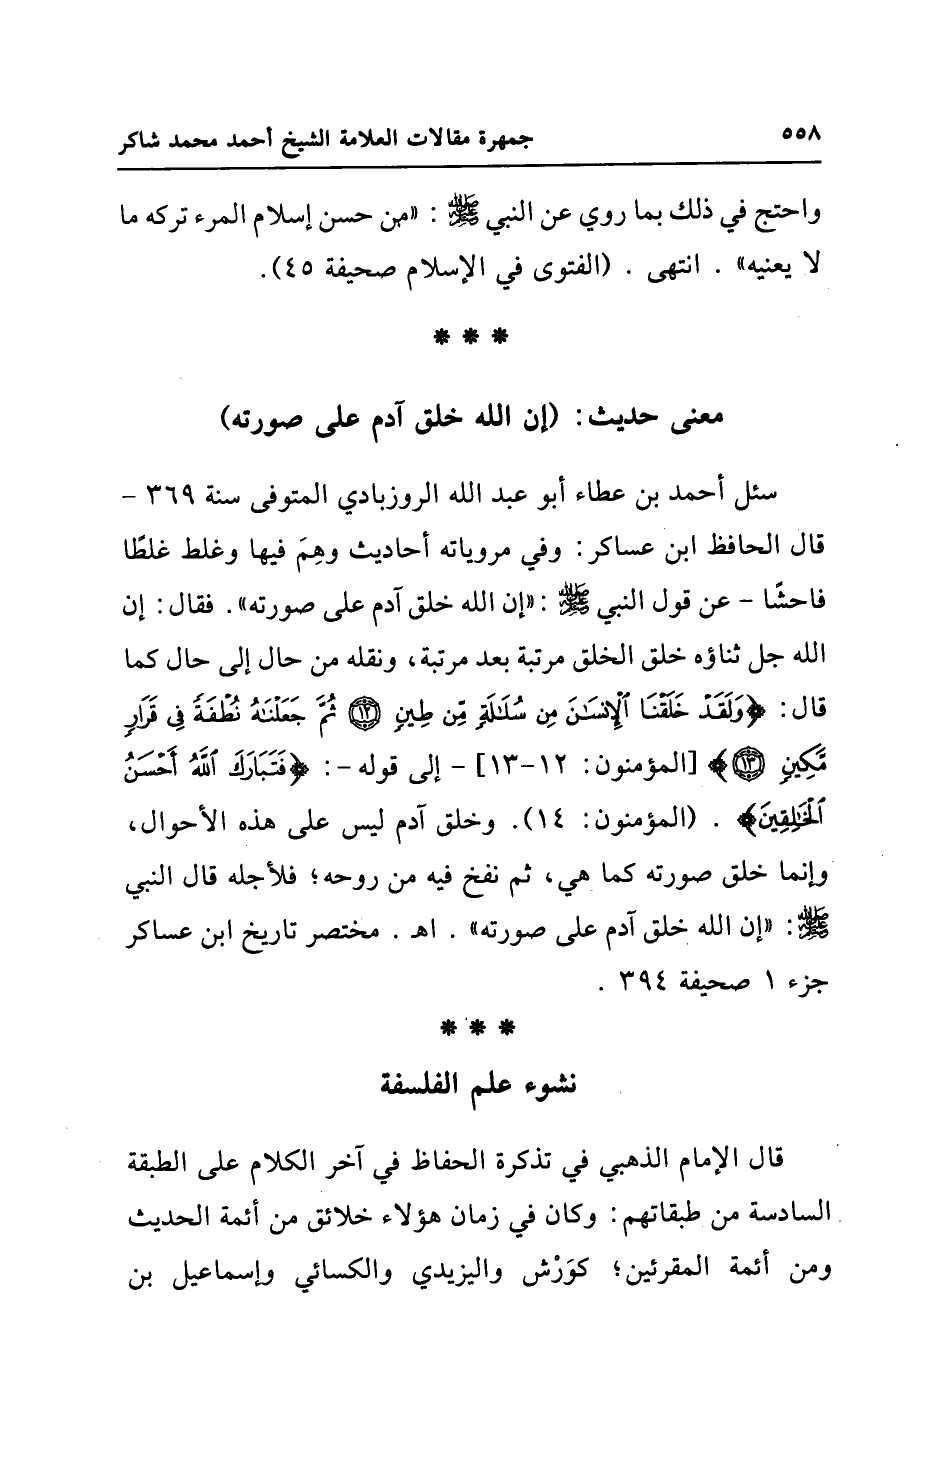 ٥٥٨ جمهرة مقالات العلامة الشيخ أحمد محمد شاكر
واحتج في ذلك بما روي عن النبي ﷺ : «من حسن إسلام المرء تركه ما
لا يعنيه» . انتهى . (الفتوى في الإسلام صحيفة ٤٥).
* * *
معنى حديث: (إن الله خلق آدم على صورته)
سئل أحمد بن عطاء أبو عبد الله الروزبادي المتوفى سنة ٣٦٩ –
قال الحافظ ابن عساكر: وفي مروياته أحاديث وهِمَ فيها وغلط غلطًا
فاحشًا – عن قول النبي ﷺ :«إن الله خلق آدم على صورته». فقال: إن
الله جل ثناؤه خلق الخلق مرتبة بعد مرتبة، ونقله من حال إلى حال كما
قال: ﴿وَلَقَدْ خَلَقْنَا ٱلْإِنسَٰنَ مِن سُلَٰلَةٍ مِّن طِينٍ ۝١٢ ثُمَّ جَعَلْنَٰهُ نُطْفَةً فِى قَرَارٍ
مَّكِينٍ ۝١٣﴾ [المؤمنون: ١٢-١٣] – إلى قوله –: ﴿فَتَبَارَكَ ٱللَّهُ أَحْسَنُ
ٱلْخَٰلِقِينَ﴾ . (المؤمنون: ١٤). وخلق آدم ليس على هذه الأحوال،
وإنما خلق صورته كما هي، ثم نفخ فيه من روحه؛ فلأجله قال النبي
ﷺ: «إن الله خلق آدم على صورته» . اهـ . مختصر تاريخ ابن عساكر
جزء ١ صحيفة ٣٩٤ .
* * *
نشوء علم الفلسفة
قال الإمام الذهبي في تذكرة الحفاظ في آخر الكلام على الطبقة
السادسة من طبقاتهم: وكان في زمان هؤلاء خلائق من أئمة الحديث
ومن أئمة المقرئين؛ كوَرْش واليزيدي والكسائي وإسماعيل بن